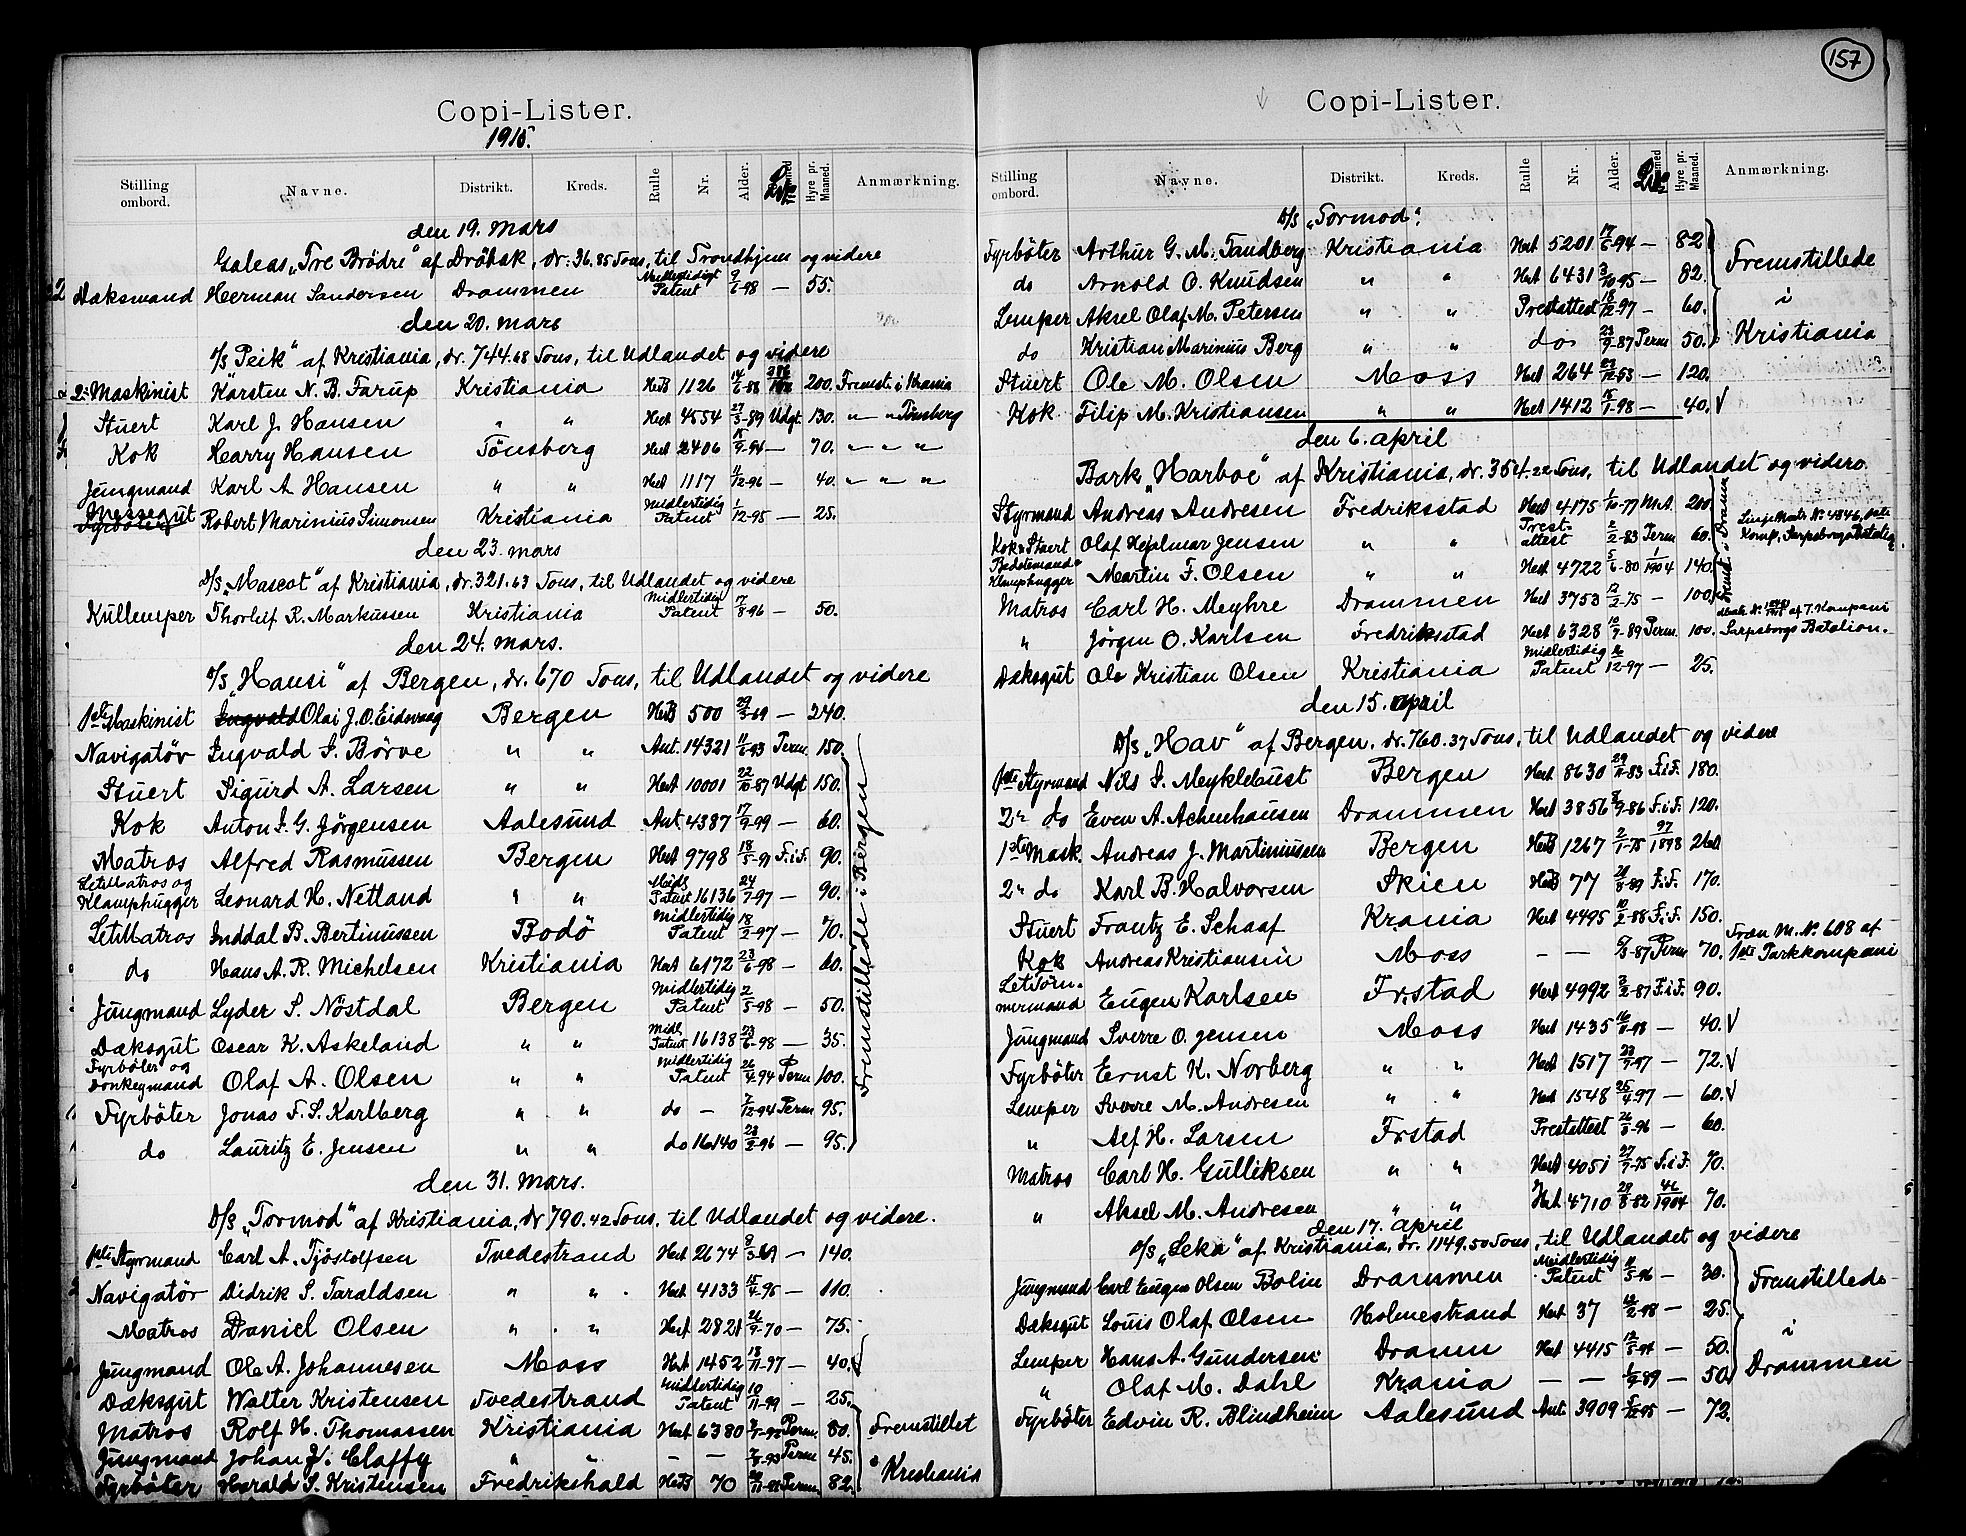 157
Copi-Lister.
1915.
Stilling ombord. Navne. Distrikt. Kreds. Rulle Nr. Alder. Hyre pr. Maaned. Anmærkning.
den 19. mars
Galeas „Tre Brödre" af Dröbak, dr. 36.85 Tons, til Trondhjem og videre
Dæksmand Herman Sandersen Drammen Patent 9/6-98 — 55.
den 20. mars
D/S „Peik" af Kristiania, dr. 744.68 Tons, til Udlandet og videre
2. Maskinist Karsten N. B. Farup Kristiania HertB 1126 14/6-88 200. Fremst. i Krania
Stuert Karl J. Hansen " " Hert 4554 27/3-89 Udgt. 130. " — " Tönsberg
Kok Harry Hansen Tönsberg Hert 2406 15/9-96 — 70. " — " "
Jungmand Karl A Hansen " " Hert 1117 11/12-96 — 40. " — " "
Messegut Robert Marinius Simonsen Kristiania Midlertidig Patent 1/12-95 — 25.
den 23. mars
D/S „Mascot" af Kristiania, dr. 321.63 Tons, til Udlandet og videre
Kullemper Thorleif R. Markussen Kristiania Midlertidig Patent 17/8-96 — 50.
den 24. mars.
D/S „Hansi" af Bergen, dr. 670 Tons, til Udlandet og videre
1ste Maskinist Ingvald Olai J. O. Eidsvaag Bergen HertB 500 29/3-69 — 240.
Navigatör Ingvald I. Börve " " Ant. 14321 11/6-93 Perm. 150.
Stuert Sigurd A. Larsen " " Hert 10001 22/10-87 Udgt 150.
Kok Anton I. G. Jörgensen Aalesund Ant. 4387 17/9-99 — 60.
Matros Alfred Rasmussen Bergen Hert 9798 18/5-91 F.i.F. 90.
LetMatros og Klamphugger Leonard H. Netland " " Midl. Patent 16136 24/7-97 — 90.
LetMatros Inddal B. Bertinussen Bodö Midlertidig Patent 18/2-97 — 70.
do Hans A. R. Michelsen Kristiania Hert 6172 23/6-98 — 60.
Jungmand Lyder S. Nöstdal Bergen Midlertidig Patent 2/5-98 — 50.
Dæksgut Oscar K. Askeland " " Midl. Patent 16138 23/6-98 — 35.
Fyrböter og Donkeymand Olaf A. Olsen " " Midlertidig Patent 26/4-94 Perm 100.
Fyrböter Jonas F. S. Karlberg " " do — 7/12-94 Perm 95.
do Lauritz E. Jensen " " do 16140 28/2-96 — 95.
Fremstillede i Bergen
den 31. mars.
D/S „Tormod" af Kristiania, dr 790.42 Tons, til Udlandet og videre.
1ste Styrmand Carl A. Tjöstolfsen Tvedestrand Hert 2674 8/3-69 — 140.
Navigatör Didrik S. Taraldsen " " Hert 4133 15/4-95 — 110.
Matros Daniel Olsen " " Hert 2821 26/9-70 — 75.
Jungmand Ole A. Johannesen Moss Hert 1452 18/11-97 — 40.
Dæksgut Walter Kristensen Tvedestrand Midlertidig Patent 10/11-99 — 25.
Matros Rolf H. Thomassen Kristiania Hert 6380 Perm. 80. Fremstillet
Jungmand Johan Claffy " " — — Perm 45.
Fyrböter Harald S. Kristensen Fredrikshald HertB 70 Perm. 82. i Kristiania
Copi-Lister.
Stilling ombord. Navne. Distrikt. Kreds. Rulle Nr. Alder. Hyre pr. Maaned. Anmærkning.
D/S „Tormod".
Fyrböter Arthur G. M. Tandberg Kristiania Hert 5201 17/6-94 — 82
do Arnold O. Knudsen " " Hert 6431 3/10-95 — 82.
Lemper Aksel Olaf M. Petersen " " Prestattest 18/12-97 — 60.
do Kristian Marinius Berg " " do 23/9-87 Perm 50.
Fremstillede i Kristiania
Stuert Ole M. Olsen Moss Hert 264 — 120.
Kok Filip M. Kristiansen " " Hert 1412 15/1-98 — 40.
den 6. april
Bark „Harboe" af Kristiania, dr. 354.22 Tons, til Udlandet og videre
Styrmand Andreas Andresen Fredriksstad Hert 4175 1/10-77 200
Kok & Stuert Olaf Hjalmar Jensen " " Prest-attest 2/2-83 Perm 60.
Klamphugger Martin F. Olsen " " Hert 4722 5/6-80 1/1904 140.
Matros Carl H. Meyhre Drammen Hert 3753 12/2-75 — 100.
" Jörgen O. Karlsen Fredriksstad Hert 6328 10/9-89 Perm. 100. Sarpsborgs Batalion.
Dæksgut Ole Kristian Olsen Kristiania Midlertidig Patent 2/12-97 — 25.
den 15. april
D/S „Hav" af Bergen, dr. 760.37 Tons, til Udlandet og videre
1ste Styrmand Nils I. Meyklebust Bergen Hert 8630 29/11-83 F.i.F. 180.
2. do Even A. Achenhausen Drammen Hert 3856 8/9-86 F.i.F. 120.
1ste Mask. Andreas J. Martiniussen Bergen HertB 1267 2/1-75 97/1898 260
2. do Karl B. Halvorsen Skien HertB 77 21/8-89 F.F. 170.
Stuert Frantz E. Schaaf Krania Hert 4495 10/2-88 F.i.F. 150.
Kok Andreas Kristiansen Moss — — 6/3-87 Perm 70. M. No. 608 af 1ste Parkkompani
LetTömmermand Eugen Karlsen Frstad Hert 4992 3/2-87 F.i.F. 90.
Jungmand Sverre O. Jensen Moss Hert 1435 16/11-98 — 40.
Fyrböter Ernst K. Norberg " " Hert 1517 23/7-97 — 72.
Lemper Sverre M. Andresen " " Hert 1548 25/4-97 — 60.
" Alf H. Larsen Frstad Prestattest 26/8-96 — 60.
Matros Carl H. Gulliksen " " Hert 4051 27/7-75 F.i.F. 70.
" Aksel M. Andresen " " Hert 4710 29/8-82 46/1904 70.
den 17. april
D/S „Leka" af Kristiania, dr. 1149.50 Tons, til Udlandet og videre
Jungmand Carl Eugen Olsen Bolin Drammen Midlertidig Patent 11/5-96 — 30.
Dæksgut Louis Olaf Olsen Holmestrand Hert 37 12/2-98 — 25.
Lemper Hans A. Gundersen Dramm Hert 4415 12/5-94 — 50.
" Olaf M. Dahl Krania — — 1/9-89 — 50
Fyrböter Edvin R. Blindheim Aalesund Ant. 3909 5/12-95 — 72.
Fremstillede i Drammen